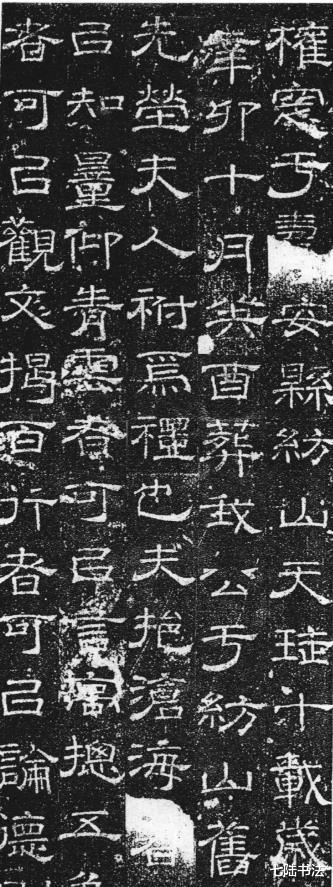 權窆于安縣紡山天寶十載歲
辛卯十月癸酉葬我公于紡山舊
先塋夫人祔焉禮也夫挹滄海者
㠯知量仰青雲者可㠯言揔五
者可㠯觀文揭百行者可㠯論德
七陆书法